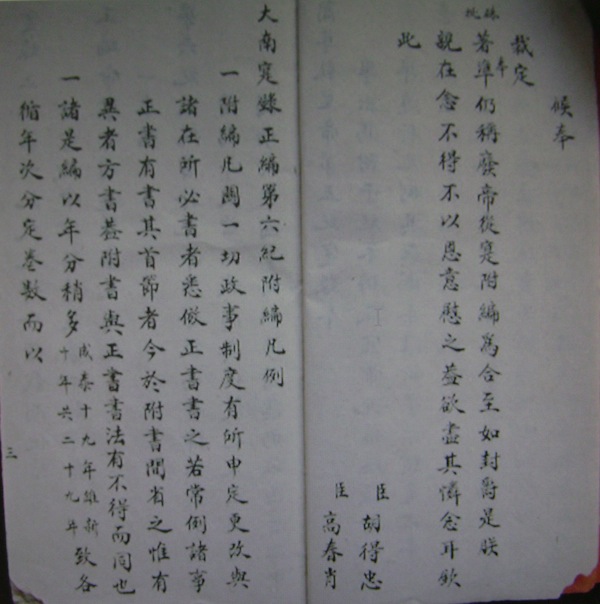 候奉
裁定
硃批
奉
著準仍稱廢帝從寔附編爲合至如封爵是朕
親在念不得不以恩意慰之蓋欲盡其憐念耳欽
此
臣 胡得忠
臣 高春肖
大南寔錄正編第六紀附編凡例
一附編凡關一切政事制度有所申定更改與
諸在所必書者悉倣正書書之若常例諸事
正書有書其首節者今於附書間省之惟有
異者方書蓋附書與正書書法有不得而同也
一諸是編以年分稍多成泰十九年維新十年共二十九年致各
循年次分定卷數而以
三